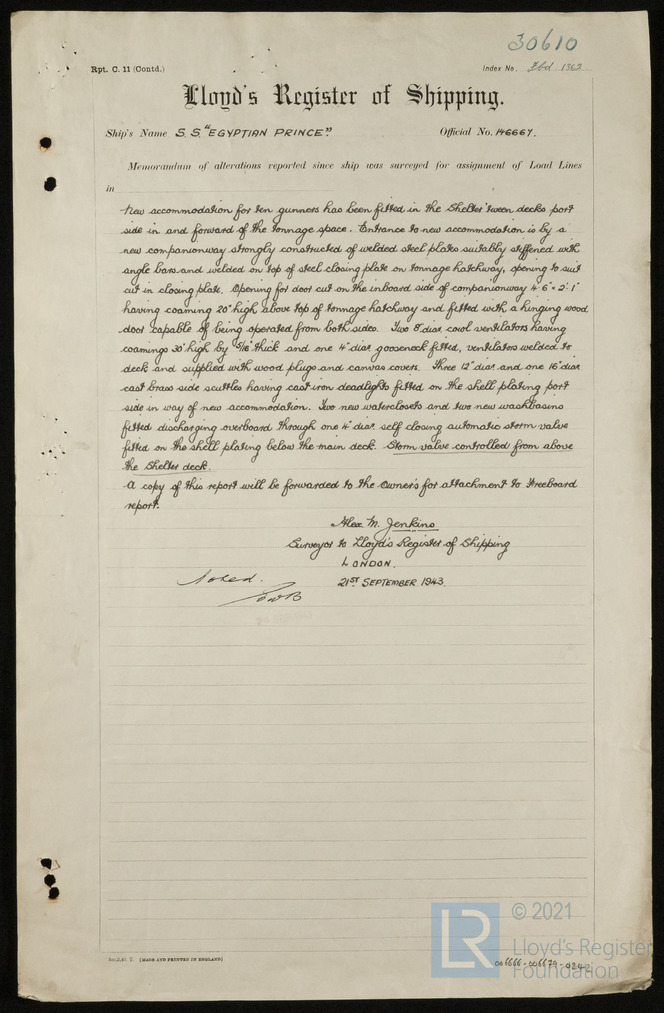 30610
Rpt. C. 11 (Contd.)
Index No. Fbd. 1362
Lloyd's Register of Shipping.
Ship's Name S.S. "EGYPTIAN PRINCE" Official No. 146667.
Memorandum of alterations reported since ship was surveyed for assignment of Load Lines
in
New accommodation for ten gunners has been fitted in the Shelter 'tween decks port
side in and forward of the tonnage space. Entrance to new accommodation is by a
new companionway strongly constructed of welded steel plates suitably stiffened with
angle bars and welded on top of steel closing plate on tonnage hatchway, opening to suit
cut in closing plate. Opening for door cut on the inboard side of companionway 4'6" x 2'1"
having coaming 20" high above top of tonnage hatchway and fitted with a hinging wood
door capable of being operated from both sides. Two 8" diar. cowl ventilators having
coamings 30" high by 5/16" thick and one 4" diar. gooseneck fitted, ventilators welded to
deck and supplied with wood plugs and canvas covers. Three 12" diar. and one 16" diar.
cast brass side scuttles having cast iron deadlights fitted on the shell plating port
side in way of new accommodation. Two new waterclosets and two new washbasins
fitted discharging overboard through one 4" diar. self closing automatic storm valve
fitted on the shell plating below the main deck. Storm valve controlled from above
the Shelter deck.
A copy of this report will be forwarded to the Owner's for attachment to Freeboard
report.
Alex. M. Jenkins
Surveyor to Lloyd's Register of Shipping
LONDON.
21ST SEPTEMBER 1943.
Noted.
(MADE AND PRINTED IN ENGLAND)
LR
© 2021
Lloyd's Register
Foundation
006666-006679-0242